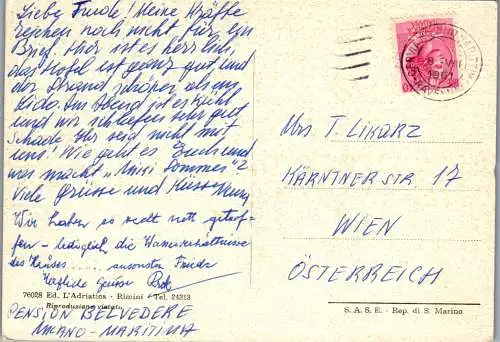 Liebe Trude! Meine Kräfte
reichen noch nicht für ein
Brief. Hier ist es herrlich,
das Hotel ist ganz gut und
der Strand schöner als am
Lido. Am Abend ist es kühl
und wir schliefen sehr gut
Schade Ihr seid nicht mit
uns! Wie geht es Euch und
was macht "Miss Sommer"?
Viele Grüsse und Küsse
Wir haben es recht nett getrof-
fen – lediglich die Wasserverhältnisse
des Hauses ..... ansonsten Friede
Herzliche Grüsse
76028 Ed. L'Adriatica - Rimini - Tel. 24213
Riproduzione vietata
PENSION BELVEDERE
MILANO-MARITTIMA
CERVIA
1961
Mrs T. LIKARZ
KÄRNTNERSTR 17
WIEN
ÖSTERREICH
S. A. S. E. - Rep. di S. Marino